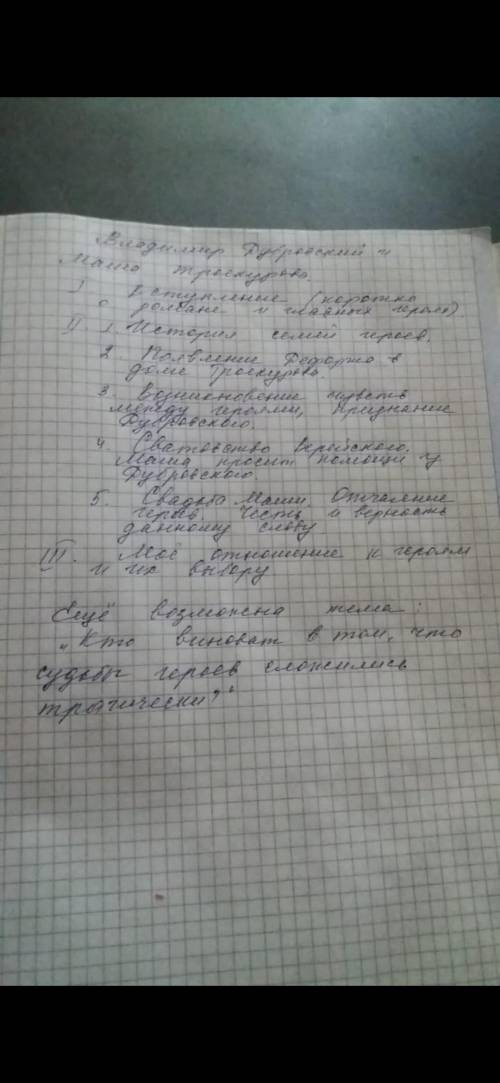 Владимир Дубровский и
Маша Троекурова.
I Вступление (коротко
о романе и главных героях).
II 1. История семей героев.
2. Появление Дефоржа в
доме Троекурова.
3. Возникновение чувств
между героями, признание
Дубровского.
4. Сватовство Верейского.
Маша просит помощи у
Дубровского.
5. Свадьба Маши. Отчаяние
героя. Честь и верность
данному слову
III. Моё отношение к героям
и их выбору
Ещё возможна тема:
"Кто виноват в том, что
судьбы героев сложились
трагически?"